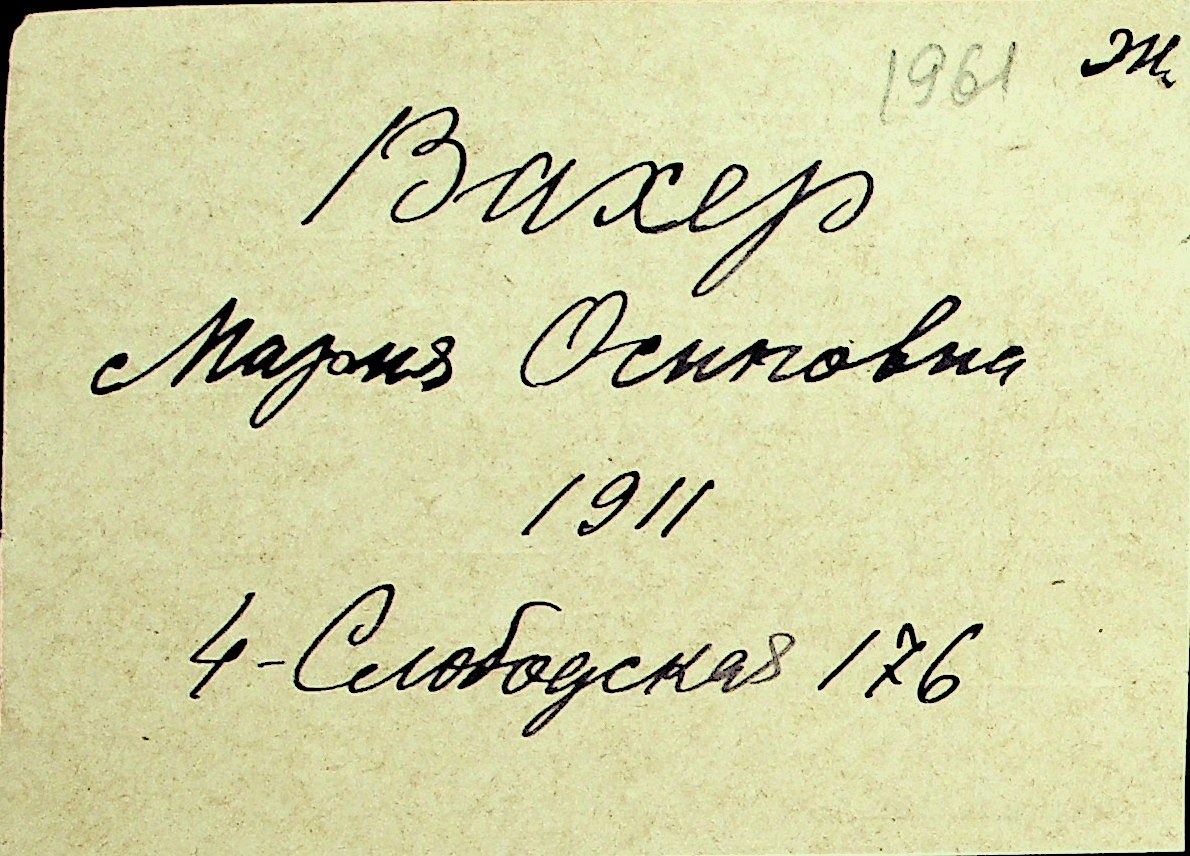 1961 Ж
Вахер
Мария Осиповна
1911
4-Слободская 176